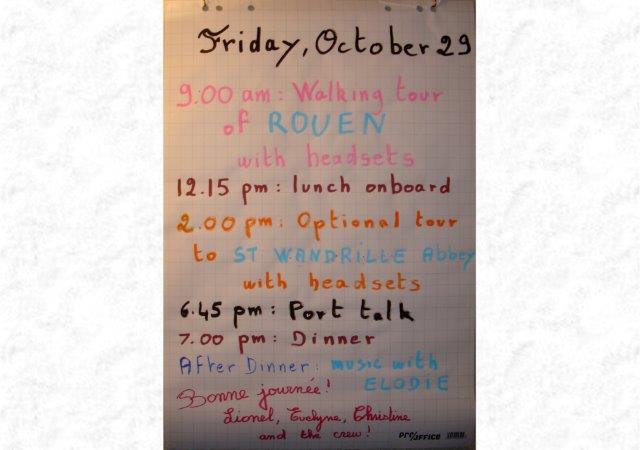 Friday, October 29
9.00 am: Walking tour
of ROUEN
with headsets
12.15 pm: lunch onboard
2.00 pm: Optional tour
to ST WANDRILLE Abbey
with headsets
6.45 pm: Port talk
7.00 pm: Dinner
After Dinner: music with
ELODIE
Bonne journée!
Lionel, Evelyne, Christine
and the crew!
PRO/OFFICE